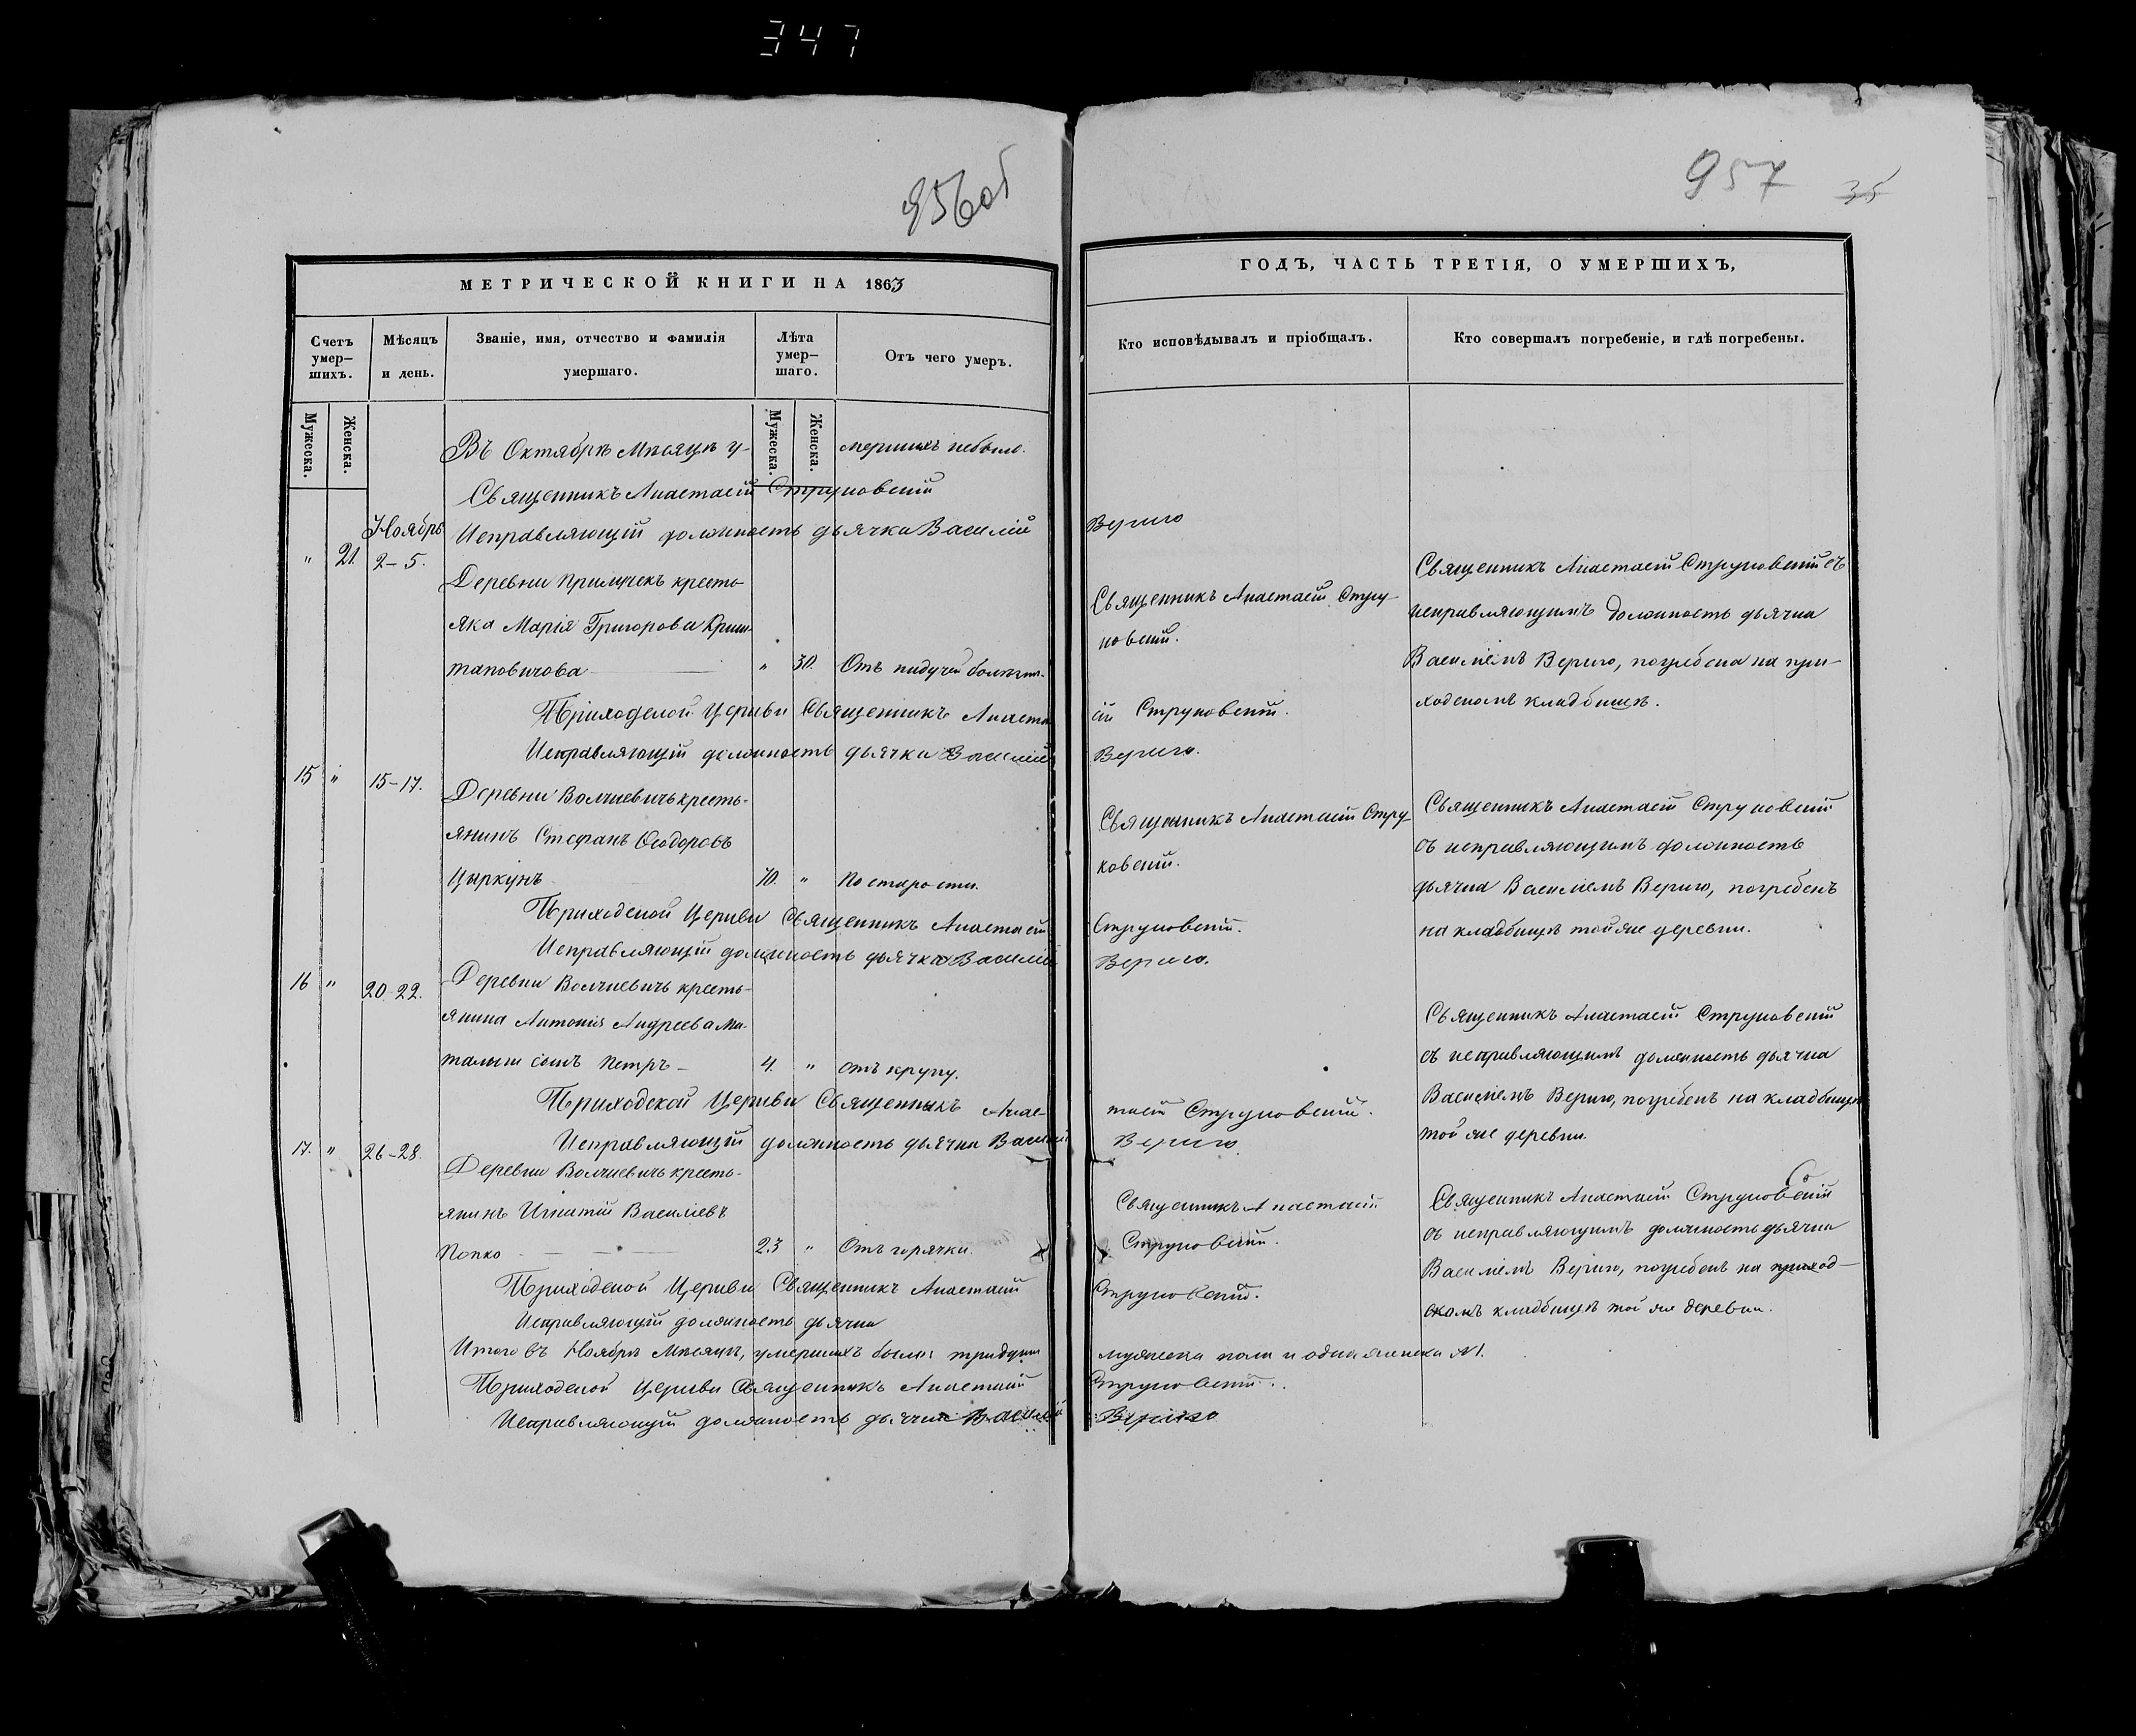 347
956 об
957 35
МЕТРИЧЕСКОЙ КНИГИ НА 1863
ГОДЪ, ЧАСТЬ ТРЕТІЯ, О УМЕРШИХЪ,
Счетъ умер-шихъ.
Мѣсяцъ и день.
Званіе, имя, отчество и фамилія умершаго.
Лѣта умер-шаго.
Отъ чего умеръ.
Кто исповѣдывалъ и пріобщалъ.
Кто совершалъ погребеніе, и гдѣ погребены.
Мужеска.
Женска.
Мужеска.
Женска.
Въ Октябрѣ Мѣсяцѣ у- мершихъ небыло.
Священникъ Анастасій Струковскій
Исправляющій должность дьячка Василій Вериго
Ноябрь
" 21. 2-5.
Деревни Прилучекъ кресть-
янка Марія Григорова Криш-
тановичова " 30. Отъ падучей болѣзни.
Священникъ Анастасій Стру-
ковскій.
Священникъ Анастасій Струковскій съ
исправляющимъ должность дьячка
Василіемъ Вериго, погребена на при-
ходскомъ кладбищѣ.
Приходской Церкви Священникъ Анаста сій Струковскій.
Исправляющій должность дьячка Василій Вериго.
15 " 15-17.
Деревни Волчкевичь кресть-
янинъ Стефанъ Ѳеодоровъ
Цыркунъ 70. " По старости.
Священникъ Анастасій Стру-
ковскій.
Священникъ Анастасій Струковскій
съ исправляющимъ должность
дьячка Василіемъ Вериго, погребенъ
на кладбищѣ той же деревни.
Приходской Церкви Священникъ Анастасій Струковскій.
Исправляющій должность дьячка Василій Вериго.
16 " 20-22.
Деревни Волчкевичь кресть-
янина Антонія Андреева Ма-
талыги сынъ Петръ - 4. " отъ крупу.
Священникъ Анастасій Струковскій
съ исправляющимъ должность дьячка
Василіемъ Вериго, погребенъ на кладбищѣ
той же деревни.
Приходской Церкви Священникъ Анас- тасій Струковскій.
Исправляющій должность дьячка Василій Вериго.
17. " 26-28.
Деревни Волчкевичь кресть-
янинъ Игнатій Василіевъ
Попко 23 " Отъ горячки.
Священникъ Анастасій
Струковскій.
Священникъ Анастасій Струковскій
съ исправляющимъ должность дьячка
Василіемъ Вериго, погребенъ на приход-
скомъ кладбищѣ той же деревни.
Приходской Церкви Священникъ Анастасій Струковскій.
Исправляющій должность дьячка
Итого въ Ноябрѣ Мѣсяцѣ, умершихъ было: три души мужеска пола и одна женска
Приходской Церкви Священникъ Анастасій Струковскій.
Исправляющій должность дьячка Василій Вериго